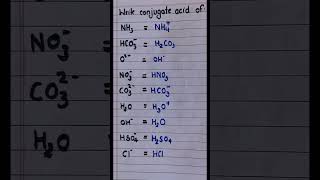 Write conjugate acid of
NH₃ = NH₄⁺
HCO₃⁻ = H₂CO₃
O²⁻ = OH⁻
NO₃⁻ = HNO₃
CO₃²⁻ = HCO₃⁻
H₂O = H₃O⁺
OH⁻ = H₂O
HSO₄⁻ = H₂SO₄
Cl⁻ = HCl